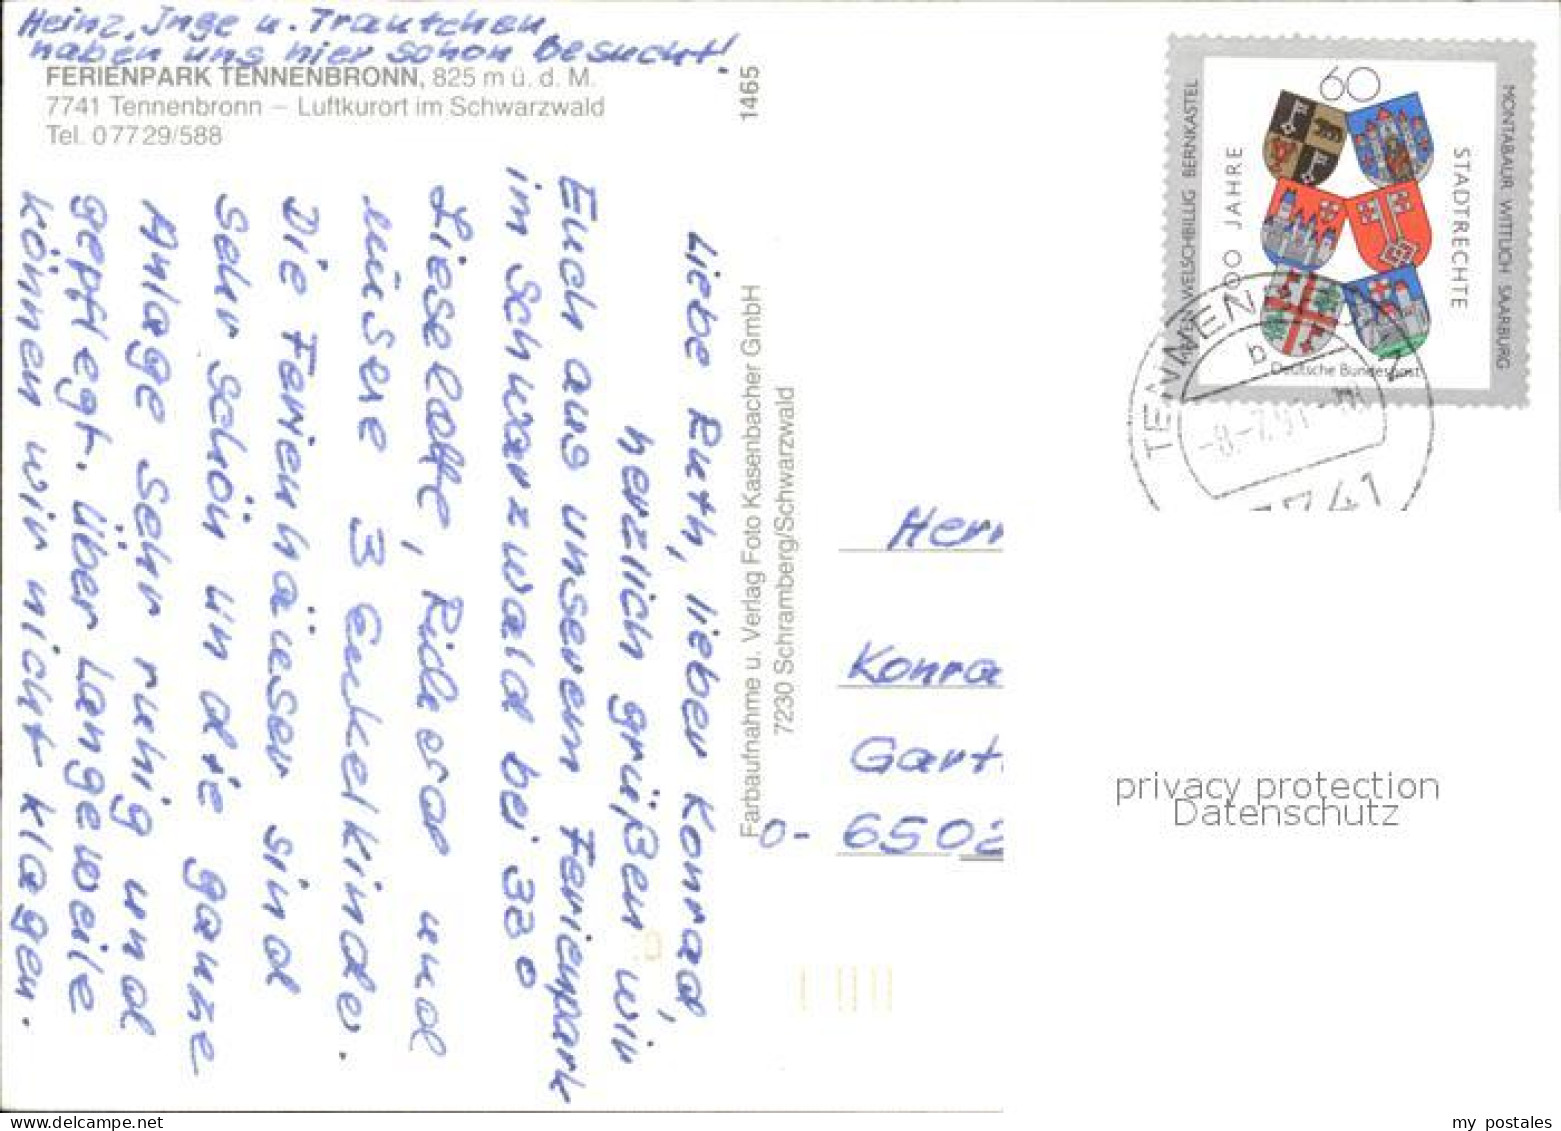 Heinz, Inge u. Trautchen
haben uns hier schon besucht!
FERIENPARK TENNENBRONN, 825 m ü. d. M.
7741 Tennenbronn – Luftkurort im Schwarzwald
Tel. 0 77 29/588
1465
Liebe Ruth, lieber Konrad,
herzlich grüßen wir
Euch aus unserem Ferienpark
im Schwarzwald bei 33°
Lieselotte, und
unsere 3 Enkelkinder.
Die Ferienhäuser sind
sehr schön und die ganze
Anlage sehr ruhig und
gepflegt. Über Langeweile
können wir nicht klagen.
Farbaufnahme u. Verlag Foto Kasenbacher GmbH
7230 Schramberg/Schwarzwald
60
700 JAHRE
STADTRECHTE
WELSCHBILLIG BERNKASTEL
MONTABAUR WITTLICH SAARBURG
Deutsche Bundespost
TENNENBRONN
b
-8.-7.91-
7741
Herr
Konra
Gart
O- 6502
privacy protection
Datenschutz
my postales